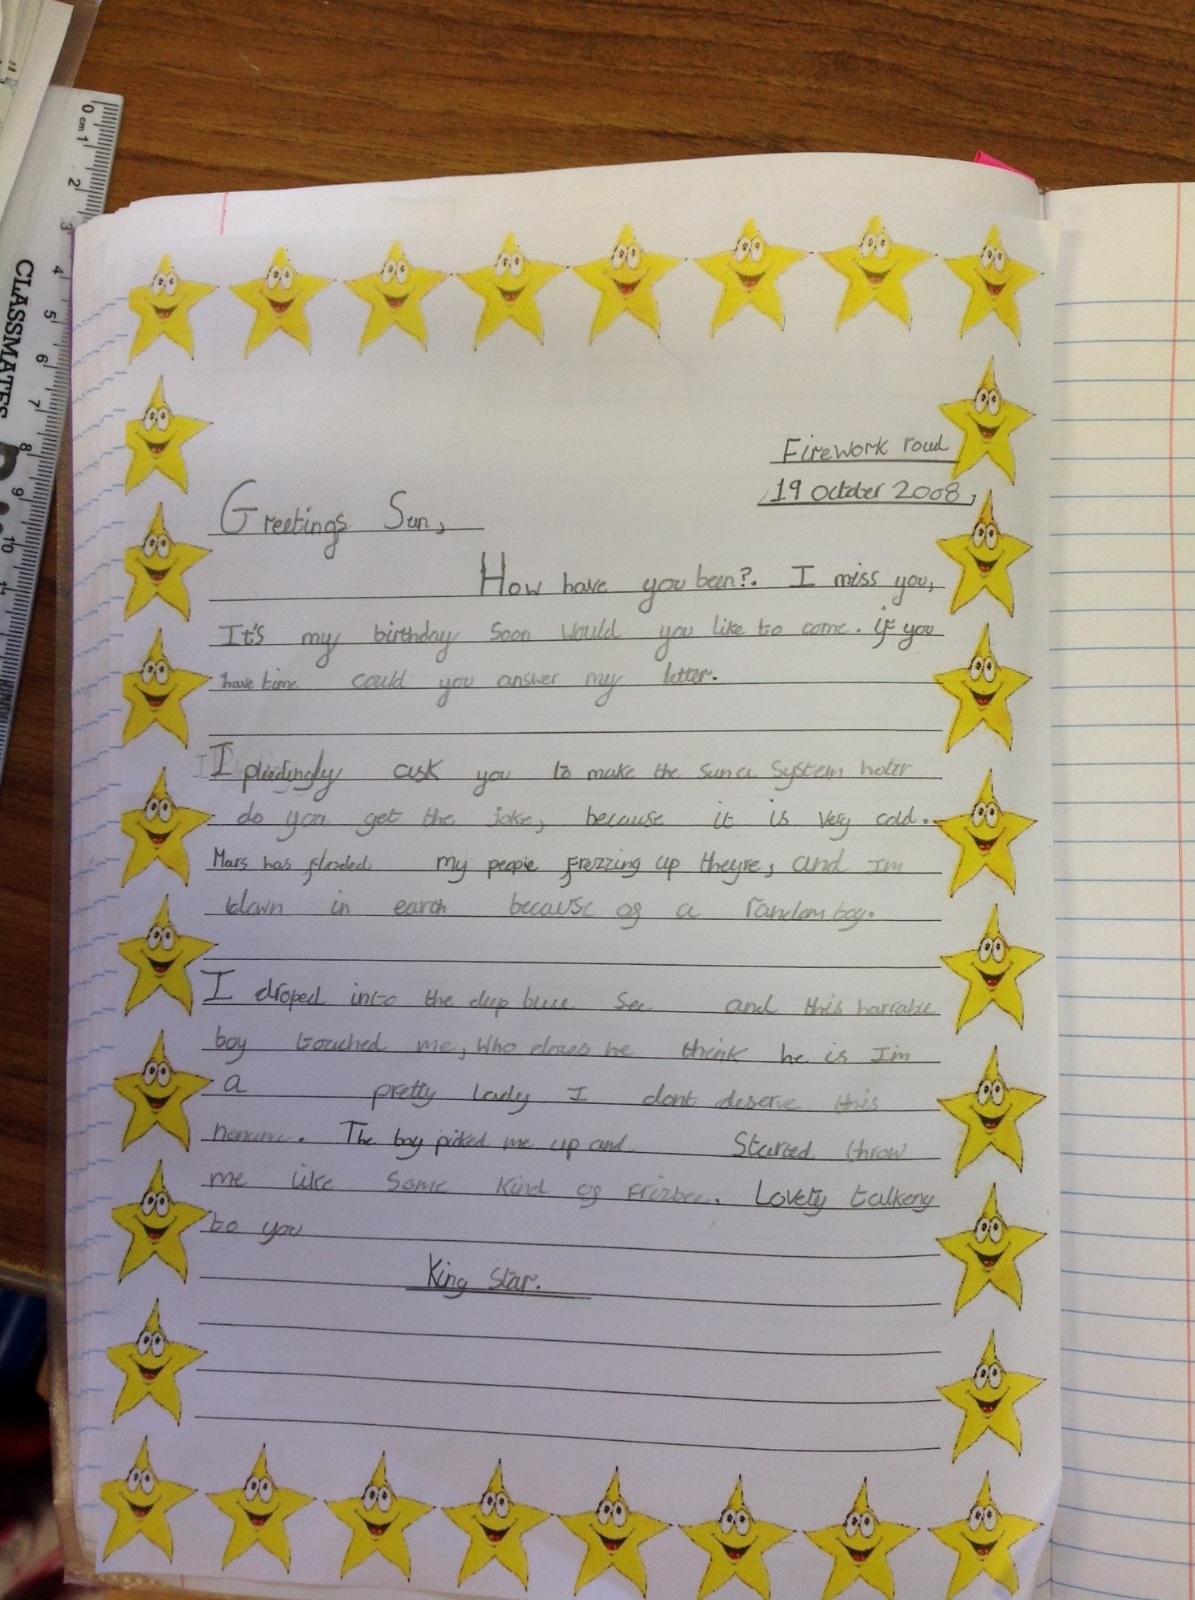 0 cm 1 2 3 4 5 6 7 8 9 10
CLASSMATES
Firework road
19 october 2008,
Greetings Sun,
How have you been?. I miss you,
It's my birthday soon would you like to come. if you
have time could you answer my letter.
I pleedingly ask you to make the suna system hoter
do you get the joke, because it is very cold.
Mars has flooded my people frezzing up theyre, and Im
down in earth because of a random boy.
I droped into the deep blue See and this horrable
boy touched me, Who does he think he is Im
a pretty lady I dont deserve this
The boy picked me up and Starced throw
me like some kind of frizbee. Lovety talkeny
to you
King Star.